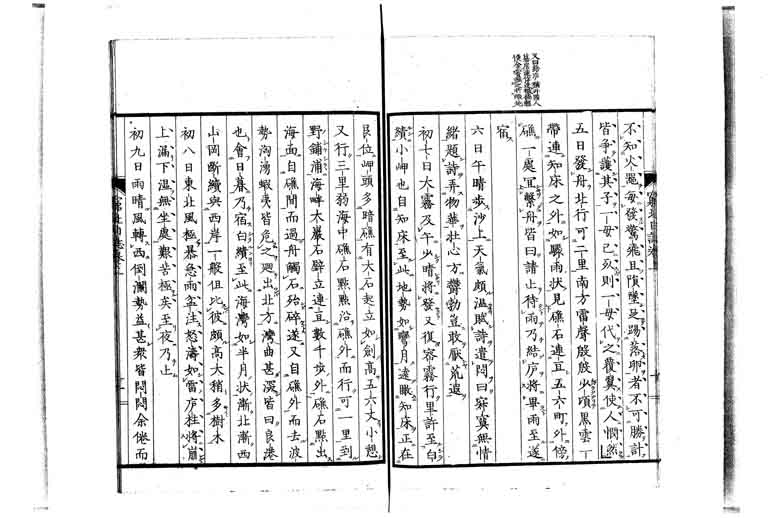 不知火器每發驚飛且隕墜足踢落卵者不可勝計
皆爭護其子一母已死則一母代之覆翼使人惘然
五日發舟北行可二里南方雷聲殷殷少頃黑雲一
帶連知床之外如驟雨狀見礁石連亘五六町外傍
礁一處宜繫舟皆曰請止待雨乃結庐將畢雨至遂
宿
六日午晴步沙上天氣頗溫賦詩遣悶曰寂寞無情
緒題詩弄物華壯心方欝勃豈敢厭荒遐
初七日大霧及午少晴將發又復容霧行里許至白
績小岬也自知床至此地勢如彎月遠瞰知床正在
艮位岬頭多暗礁有大石起立如劍高五六丈小憩
又行三里弱海中礁石點點沿礁外而行可一里到
野鋪浦海畔大巖石壁立連亘數千步外礁石點出
海面自礁間而過舟觸石殆碎遂又自礁外而去波
勢洶湧蝦夷皆危之廻出北方灣曲甚深皆曰良港
也會日暮乃宿白績至此海灣如半月狀漸北漸西
山岡斷續與西岸一般但比彼頗高大稍多樹木
初八日東北風極暴急雨盆注怒海如雷庐柱將崩
上漏下濕無坐處艱苦極矣至夜乃止
初九日雨晴風轉西倒瀾勢益甚衆皆悶悶余倦而